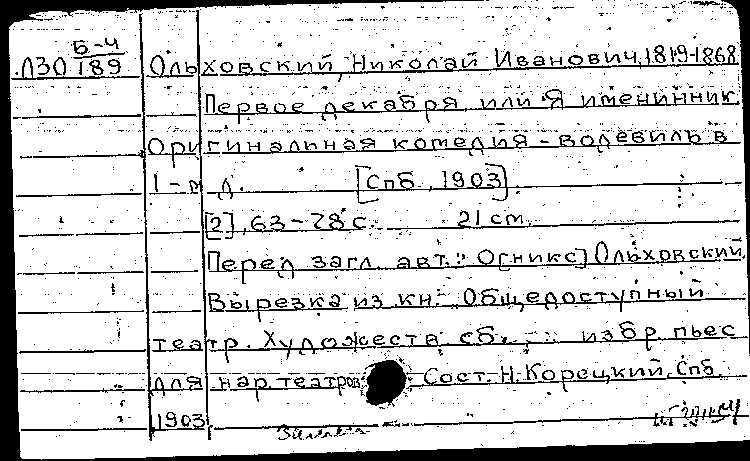 Б-Ч
Л30 189 Ольховский, Николай Иванович, 1819-1868
Первое декабря или Я именинник
Оригинальная комедия-водевиль в
1-м д. [Спб., 1903].
[2], 63-78 с. 21 см.
Перед загл. авт.: О[никс] Ольховский
Вырезка из кн.: Общедоступный
театр. Художеств. сб. избр. пьес
для нар. театров. Сост. Н. Корецкий. Спб.
1903